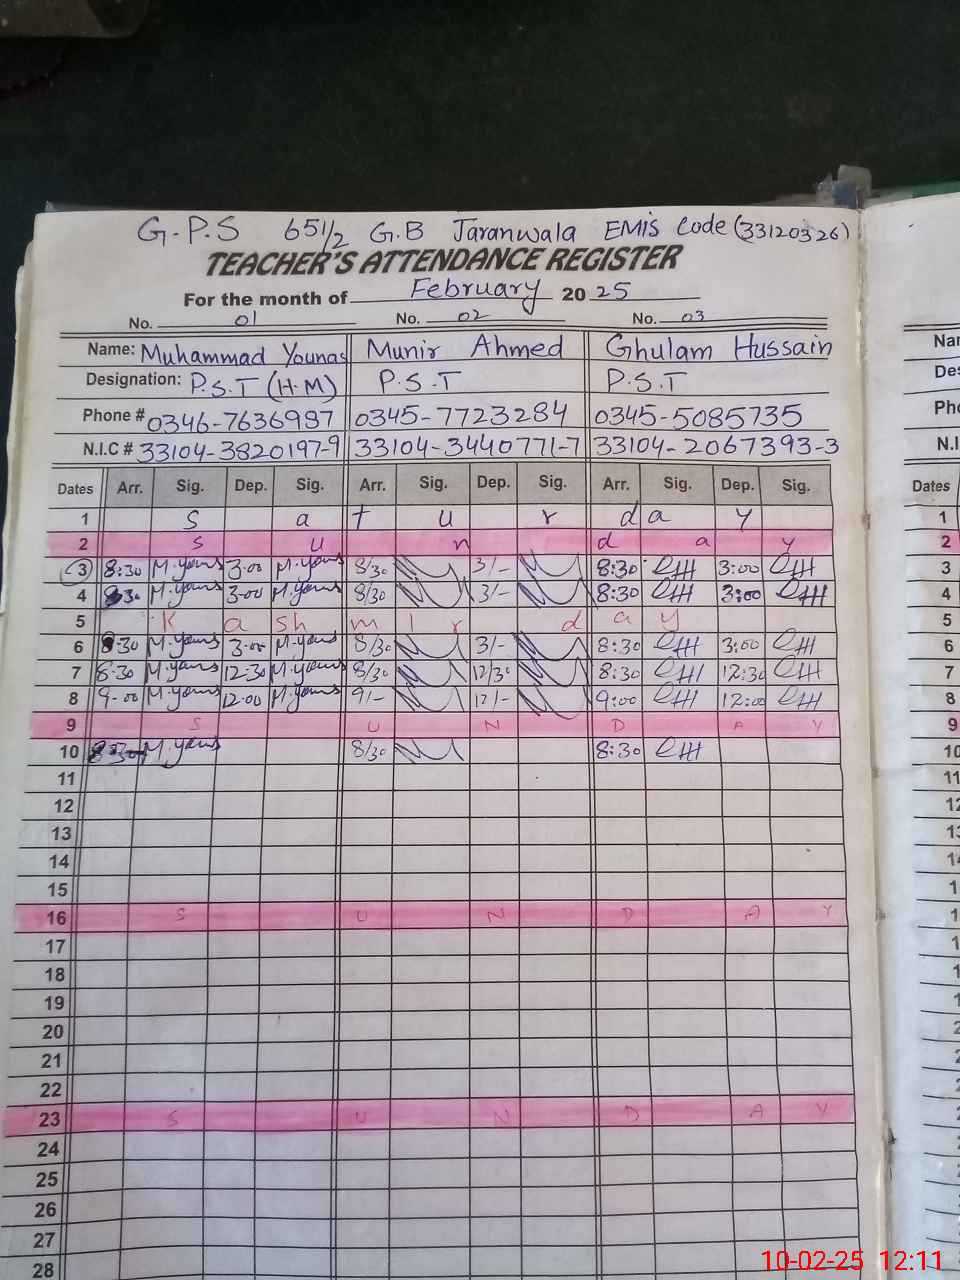 G.P.S 651/2 G.B Jaranwala EMIS Code (33120326)
TEACHER'S ATTENDANCE REGISTER
For the month of February 20 25
No. 01 No. 02 No. 03
Name: Muhammad Younas Munir Ahmed Ghulam Hussain
Designation: P.S.T (H.M) P.S.T P.S.T
Phone # 0346-7636987 0345-7723284 0345-5085735
N.I.C # 33104-3820197-9 33104-3440771-7 33104-2067393-3
Dates Arr. Sig. Dep. Sig. Arr. Sig. Dep. Sig. Arr. Sig. Dep. Sig.
1 S a t u r d a y
2 S u n d a y
3 8:30 M.younas 3:00 M.younas 8/30 3/- 8:30 3:00
4 8:30 M.younas 3:00 M.younas 8/30 3/- 8:30 3:00
5 K a sh m i r d a y
6 8:30 M.younas 3:00 M.younas 8/30 3/- 8:30 3:00
7 8:30 M.younas 12:30 M.younas 8/30 12/30 8:30 12:30
8 9:00 M.younas 12:00 M.younas 9/- 12/- 9:00 12:00
9 S U N D A Y
10 8:30 M.younas 8/30 8:30
11
12
13
14
15
16 S U N D A Y
17
18
19
20
21
22
23 S U N D A Y
24
25
26
27
28
Dates
1
2
3
4
5
6
7
8
9
10
11
10-02-25 12:11